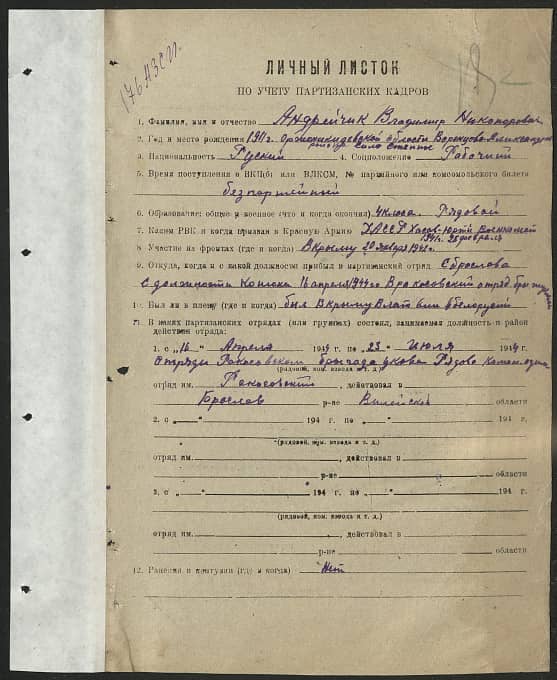 176 АЗСП.
ЛИЧНЫЙ ЛИСТОК
ПО УЧЕТУ ПАРТИЗАНСКИХ КАДРОВ
1. Фамилия, имя и отчество Андрейчик Владимир Никанорович
2. Год и место рождения 1911г. Орджоникидзевской области Воронцово-Александро
район село Степное
3. Национальность Руский 4. Соцположение Рабочий
5. Время поступления в ВКП(б) или ВЛКСМ, № партийного или комсомольского билета
безпартейный
6. Образование: общее и военное (что и когда окончил) 4 класа. Рядовой
7. Каким РВК и когда призван в Красную Армию ДАССР Хасав-Юрт Военкомат
1941г. 25 февраля
8. Участие на фронтах (где и когда) В крыму 20 января 1942г.
9. Откуда, когда и с какой должности прибыл в партизанский отряд С брослова
с должности Конюха 16 апреля 1944г. в Рокосовский отряд
10. Был ли в плену (где и когда) был В крыму Влатвии вбелорусии
11. В каких партизанских отрядах (или группах) состоял, занимаемая должность и район
действия отряда:
1. с „16“ Апреля 1944 г. по „23“ Июля 1944 г.
отряды Рокосовском бригада Жукова Рядово
(рядовой, ком. взвода и т. д.)
отряд им. Рокосовский, действовал в
Брослав р-не Вилейской области
2. с „ “ 194 г. по „ “ 194 г.
(рядовой, ком. взвода и т. д.)
отряд им. , действовал в
р-не области
3. с „ “ 194 г. по „ “ 194 г.
(рядовой, ком. взвода и т. д.)
отряд им. , действовал в
р-не области
12. Ранения и контузии (где и когда) Нет